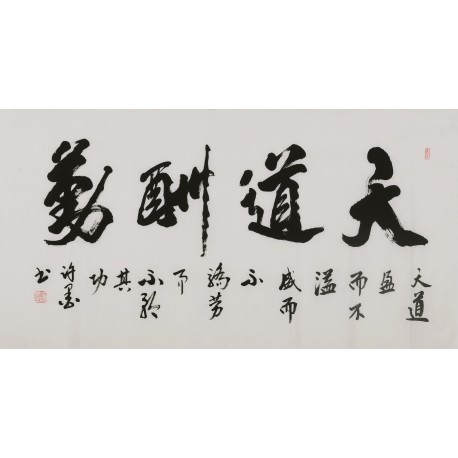 天道酬勤
天道
盈
而不
溢
盛而
不
骄劳
而
不矜
其
功
书